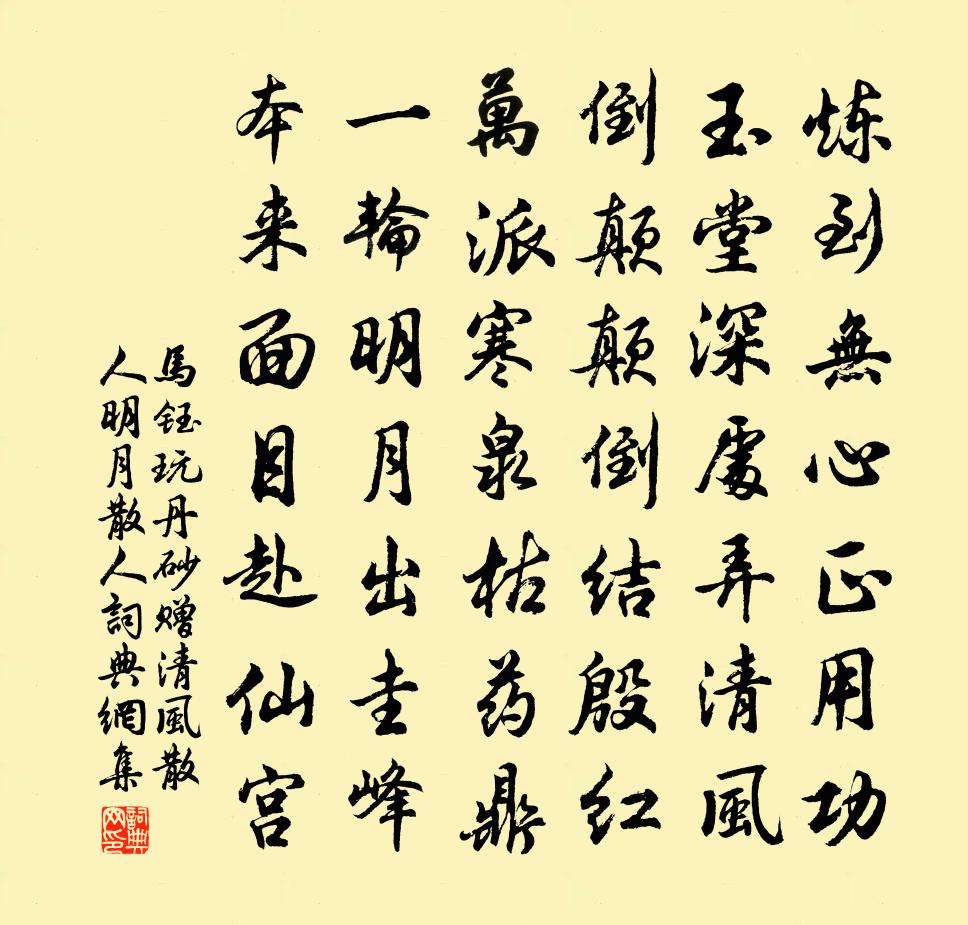 炼到無心正用功
玉堂深處弄清風
倒颠颠倒结殷红
萬派寒泉枯药鼎
一輪明月出圭峰
本来面目赴仙宫
馬钰玩丹砂赠清風散
人明月散人詞典網集
詞典网印